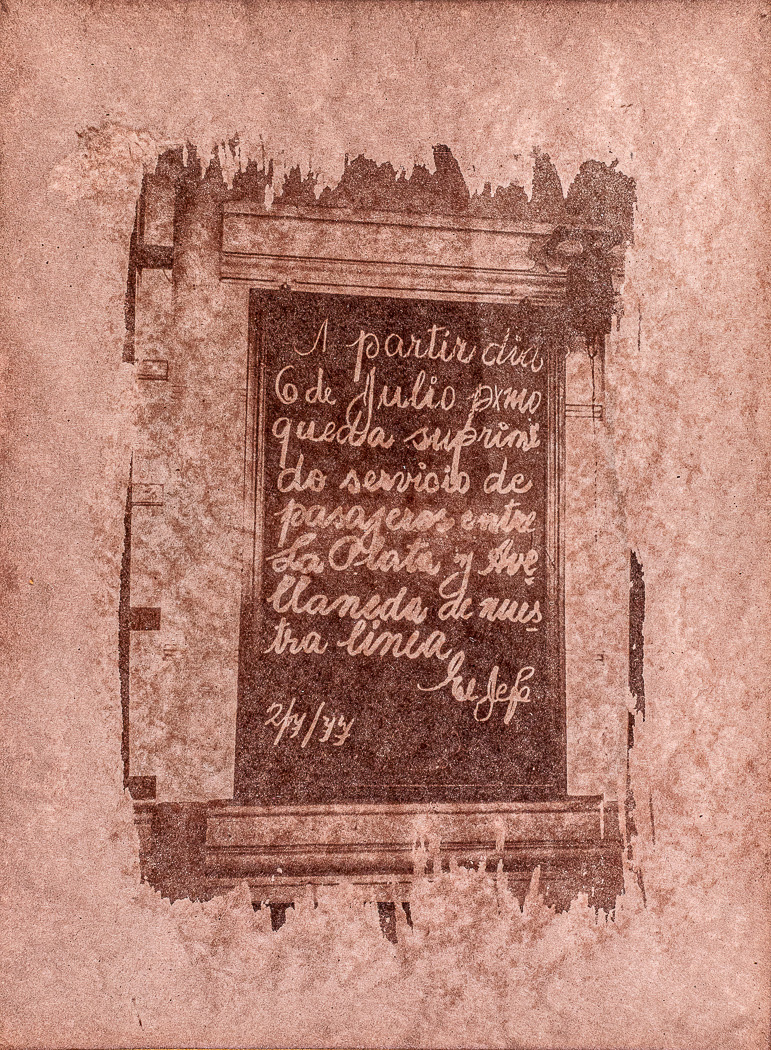 A partir dia
6 de Julio pxmo
queda suprimi
do servicio de
pasajeros entre
La Plata y Ave
llaneda de nues
tra linea,
El Jefe
2/7/77